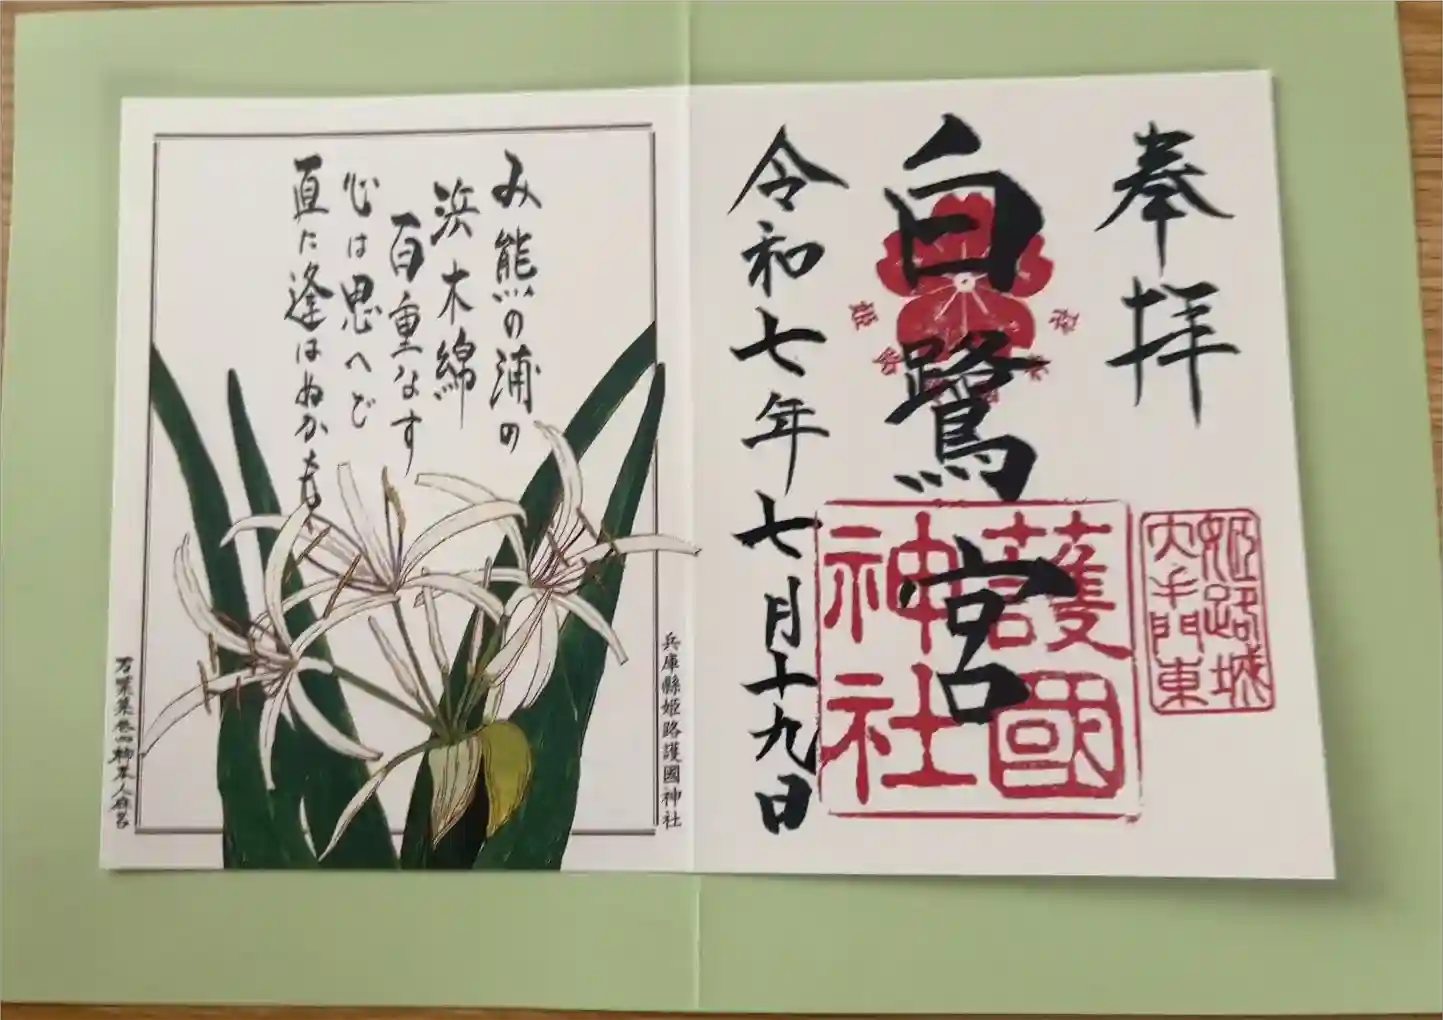 奉拝
白鷺宮
令和七年七月十九日
姫路城
大手門東
護國
神社
み熊の浦の
浜木綿
百重なす
心は思へど
直に逢はぬかも
兵庫縣姫路護國神社
万葉集巻四柿本人麻呂